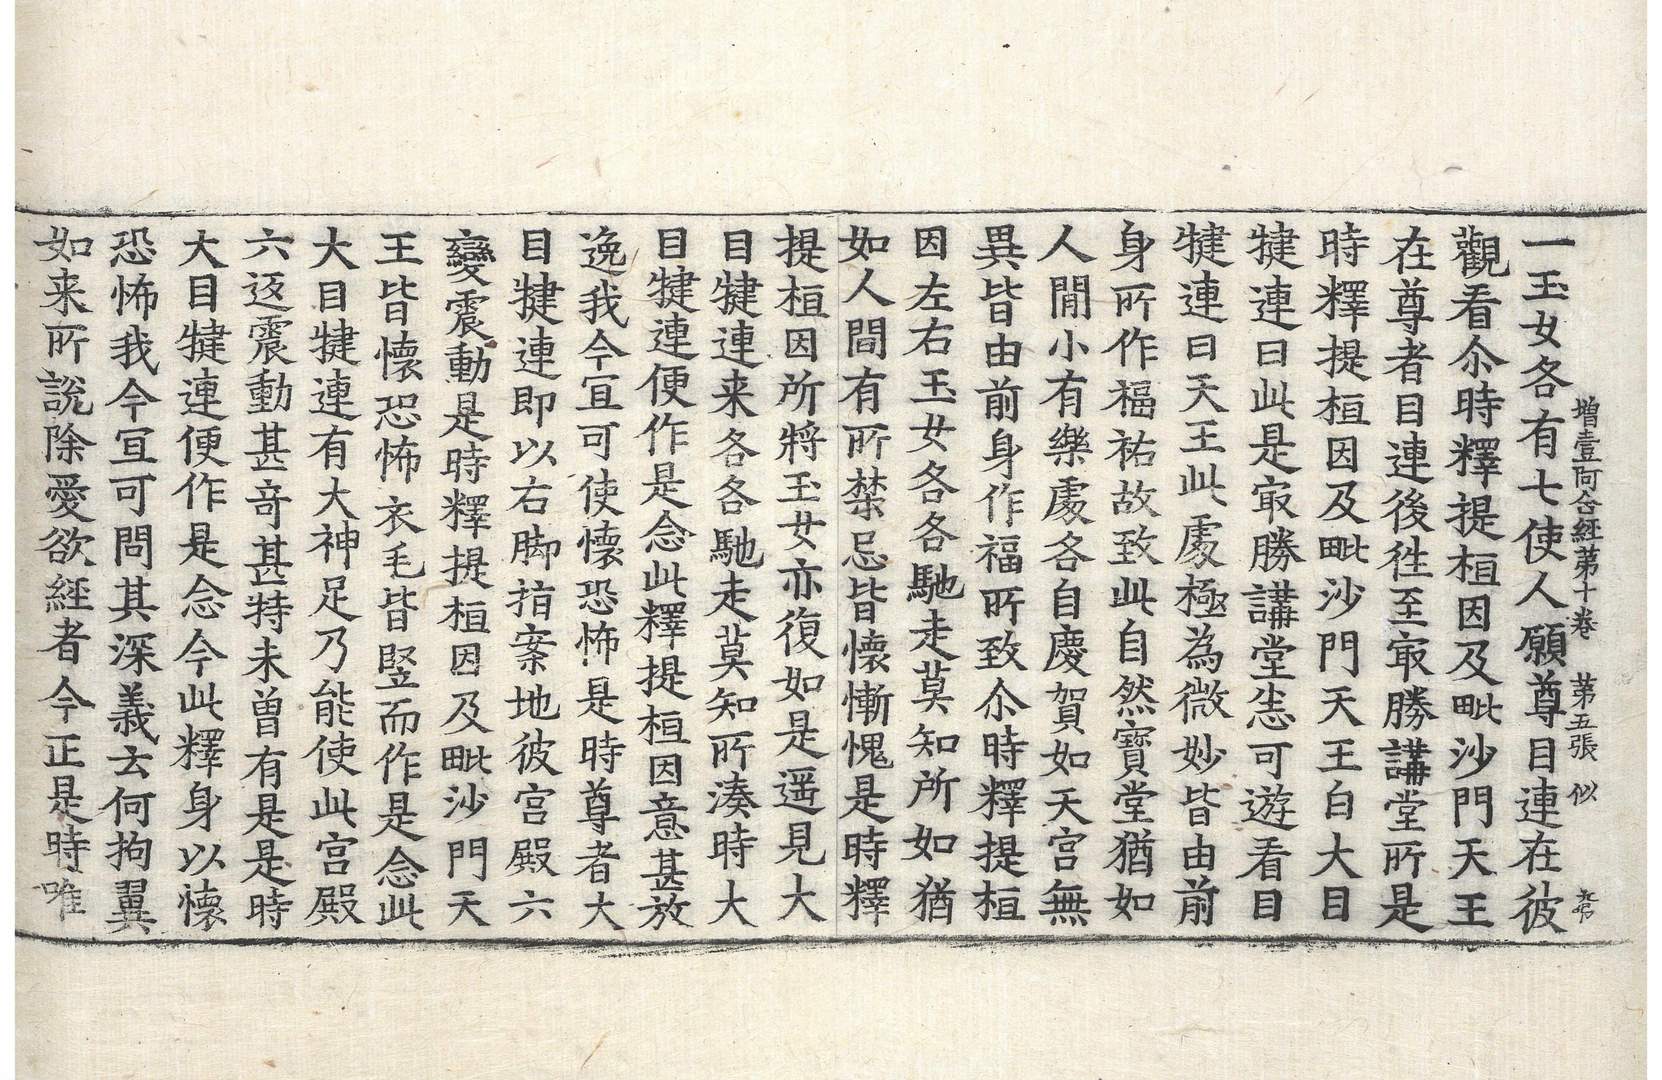 增壹阿含經第十卷 第五張 似
一玉女各有七使人願尊目連在彼
觀看尒時釋提桓因及毗沙門天王
在尊者目連後往至㝡勝講堂所是
時釋提桓因及毗沙門天王白大目
犍連曰此是㝡勝講堂悉可遊看目
犍連曰天王此處極為微妙皆由前
身所作福祐故致此自然寶堂猶如
人間小有樂處各自慶賀如天宮無
異皆由前身作福所致尒時釋提桓
因左右玉女各各馳走莫知所如猶
如人間有所禁忌皆懷慚愧是時釋
提桓因所將玉女亦復如是遥見大
目犍連来各各馳走莫知所湊時大
目犍連便作是念此釋提桓因意甚放
逸我今宜可使懷恐怖是時尊者大
目犍連即以右脚指案地彼宮殿六
變震動是時釋提桓因及毗沙門天
王皆懷恐怖衣毛皆竪而作是念此
大目犍連有大神足乃能使此宮殿
六返震動甚奇甚特未曾有是是時
大目犍連便作是念今此釋身以懷
恐怖我今宜可問其深義云何拘翼
如来所說除愛欲經者今正是時唯